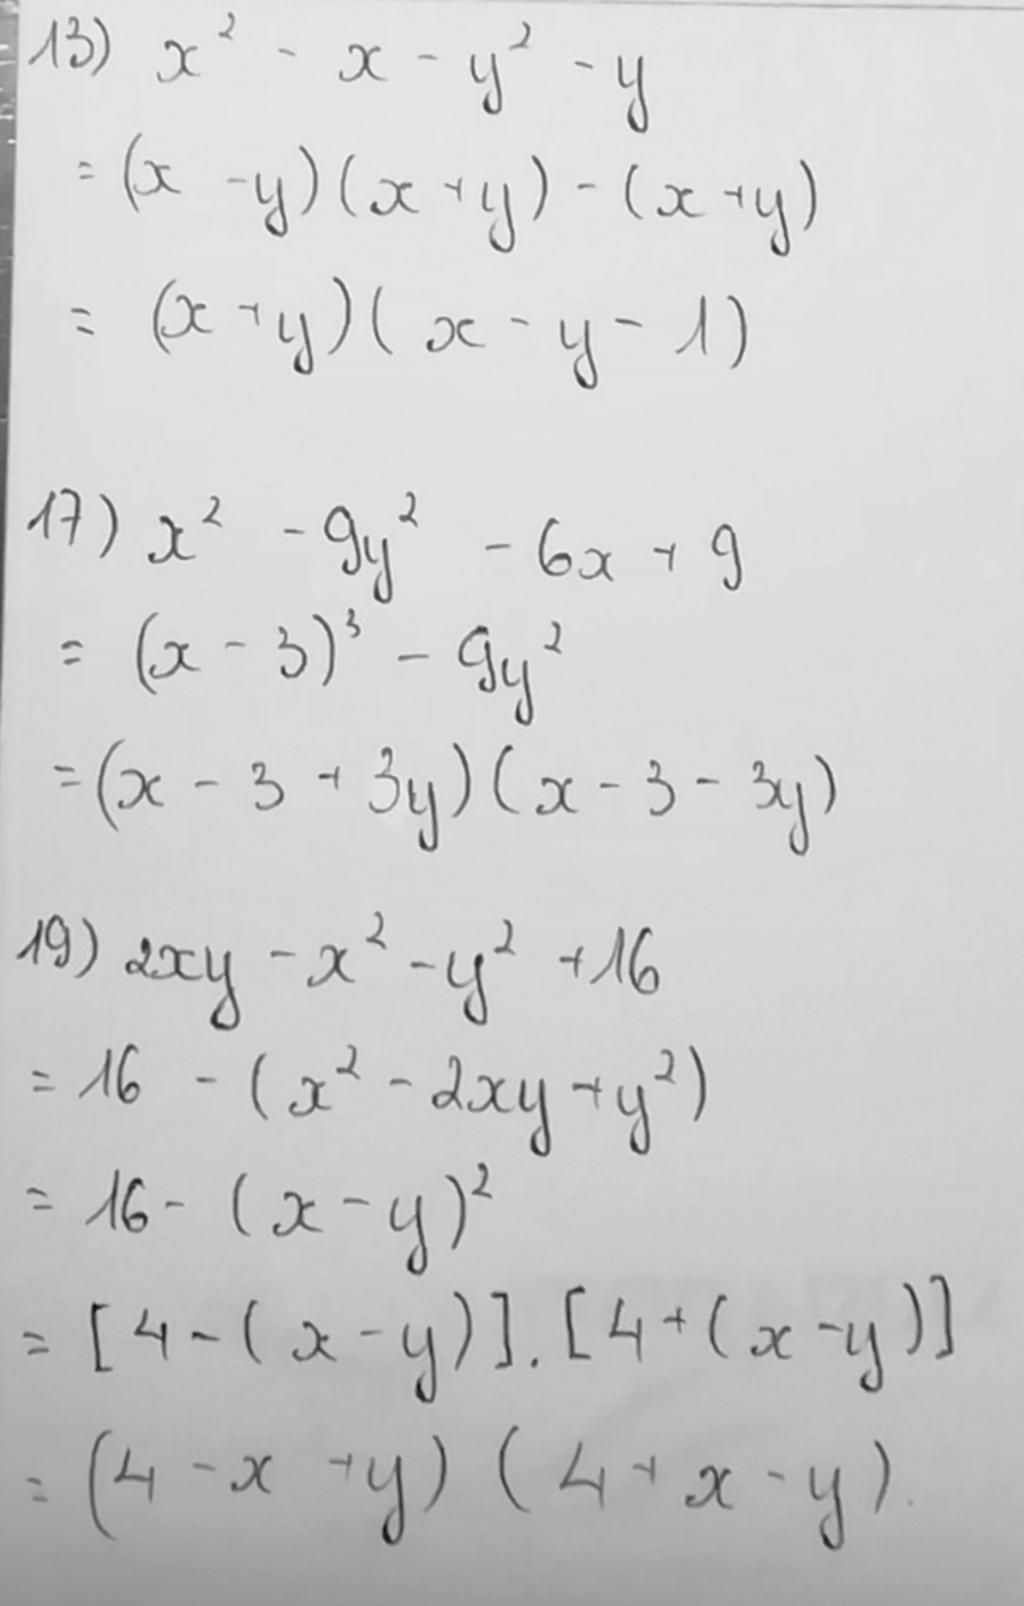 13) x² - x - y² - y
= (x - y)(x + y) - (x + y)
= (x + y)(x - y - 1)
17) x² - 9y² - 6x + 9
= (x - 3)³ - 9y²
= (x - 3 + 3y)(x - 3 - 3y)
19) 2xy - x² - y² + 16
= 16 - (x² - 2xy + y²)
= 16 - (x - y)²
= [4 - (x - y)] . [4 + (x - y)]
= (4 - x + y) (4 + x - y).